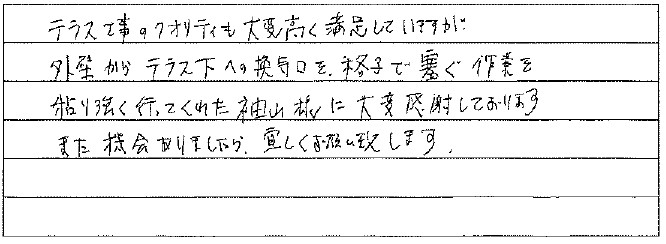 テラス工事のクオリティも大変高く満足していますが
外壁からテラス下への換気口を、格子で塞ぐ作業を
粘り強く行ってくれた神山様に大変感謝しております
また機会ありましたら、宜しくお願い致します。